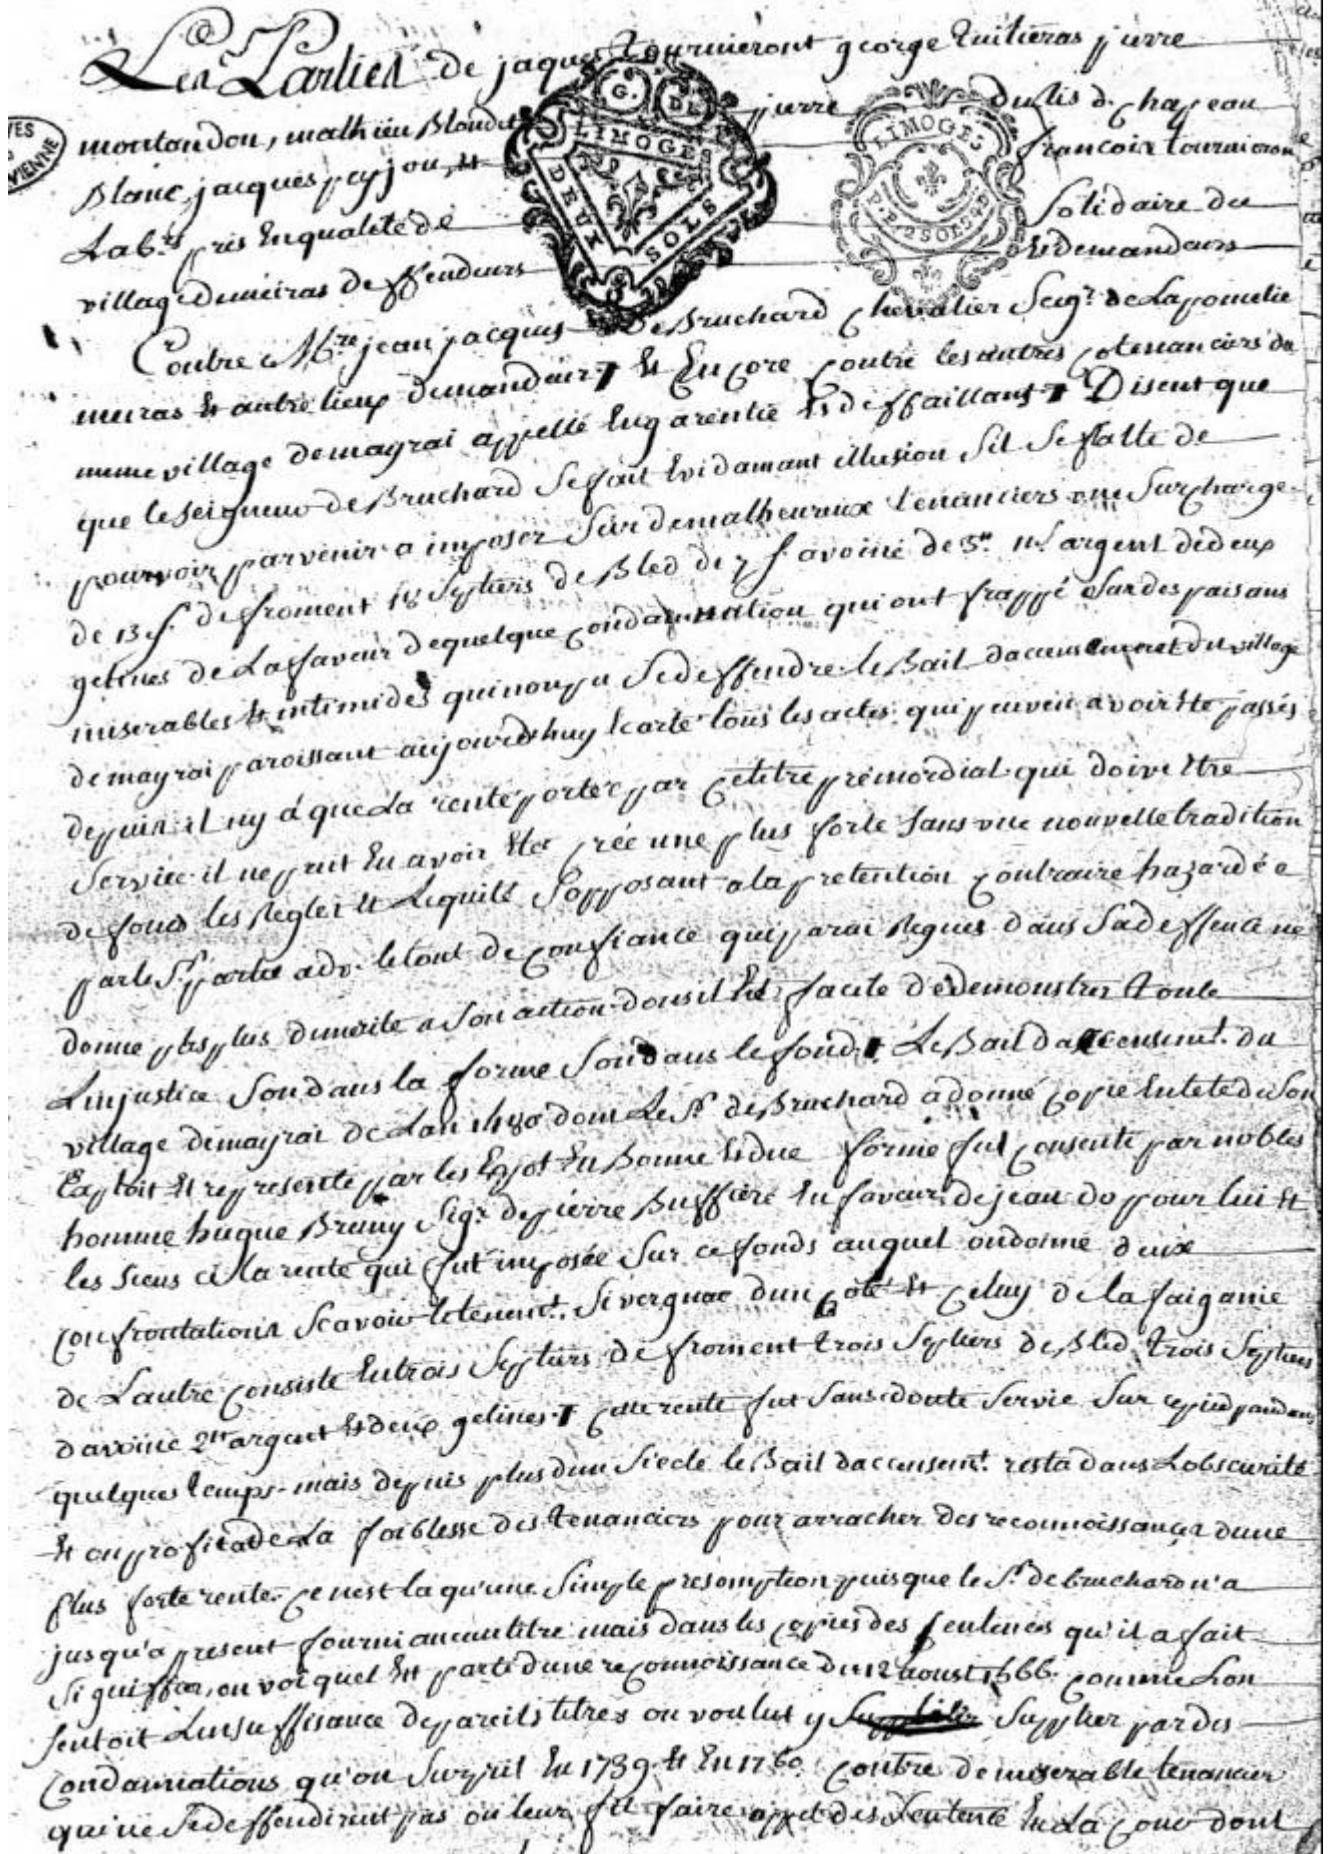 Les Parties de jaques tournieront george tuilieras pierre
montandon, mathieu Blondet pierre dutis d. chapeau
Blanc, jacques pepjou, et francoix tournieron
Lab.rs pris en qualité de Solidaire du
village de meiras deffendeurs et demandeurs
Contre M.re jean jacques De Bruchard chevalier Seig.r de Lapomelie
meiras et autre lieux demandeur et Encore contre les autres cotenanciers du
meme village de mayrai appellé en garentie et deffaillants Disent que
que le seigneur de Bruchard se fait evidamant illusion sil se flatte de
pourvoir parvenir a imposer Sur de malheureux tenanciers une Surcharge
de 13 s. de froment 18 septiers de Bled de 7 s. avoine de 3.tt argent de deux
gelines de La faveur de quelque condamnation qui ont frappé Sur des paisans
miserables et intimides qui nont pu Se deffendre. le Bail daccensement du village
de mayrai paroissant aujourdhuy ecarte tous les actes qui peuvent avoir ete passés
depuis il ny a que La rente portée par ce titre primordial qui doive etre
Servie. il ne peut En avoir ete créé une plus forte Sans une nouvelle tradition
de fond les Regles et Lequité Sopposant a la pretention contraire hazardée
par le S.r partie adv. le tont de confiance qui parai Regner dans Sa deffence ne
donne pas plus de merite a Son action dont il Est facile de demonstrer toute
Linjustice Soit dans la forme Soit dans le fond. Le Bail daccensem.t du
village de mayrai de Lan 1480 dont Le S.r de Bruchard a donné copie En tete de Son
Exploit Et represente par les En Bonne Et due forme fut consenti par nobles
homme hugue Bruny Sig.r de pierre Buffiere En faveur de jean do pour lui et
les Siens la rente qui fut imposée Sur ce fonds auquel on donne deux
confrontations Scavoir le tenem.t Sivergnac dun coté et Celuy de la faiganie
de Lautre consiste En trois Septiers de froment trois Septiers de Bled trois Septiers
davoine 2.tt argent et deux gelines. cette rente fut Sans doute Servie Sur ce pied pandant
quelques temps. mais depuis plus dun Siecle le Bail daccensem.t resta dans Lobscurité
et on profita de La foiblesse des tenanciers pour arracher des reconnoissances dune
plus forte rente. ce nest la qu'une Simple presomption puisque le S.r de bruchard n'a
jusqu'a present fourni aucun titre mais dans les copies des Sentences qu'il a fait
Signiffier, on voi quel Est parlé dune reconnoissance du 12 aoust 1666. comme Lon
Sentoit Linsuffisance de pareils titres on voulut y Supplier par des
condamnations qu'on Surprit En 1739. et En 1760. contre de miserable tenancier
qui ne Se deffendirent pas on leur fit faire appel des Sentence En La cour dont
G. DE LIMOGES
DEUX SOLS
LIMOGES
VIENNE